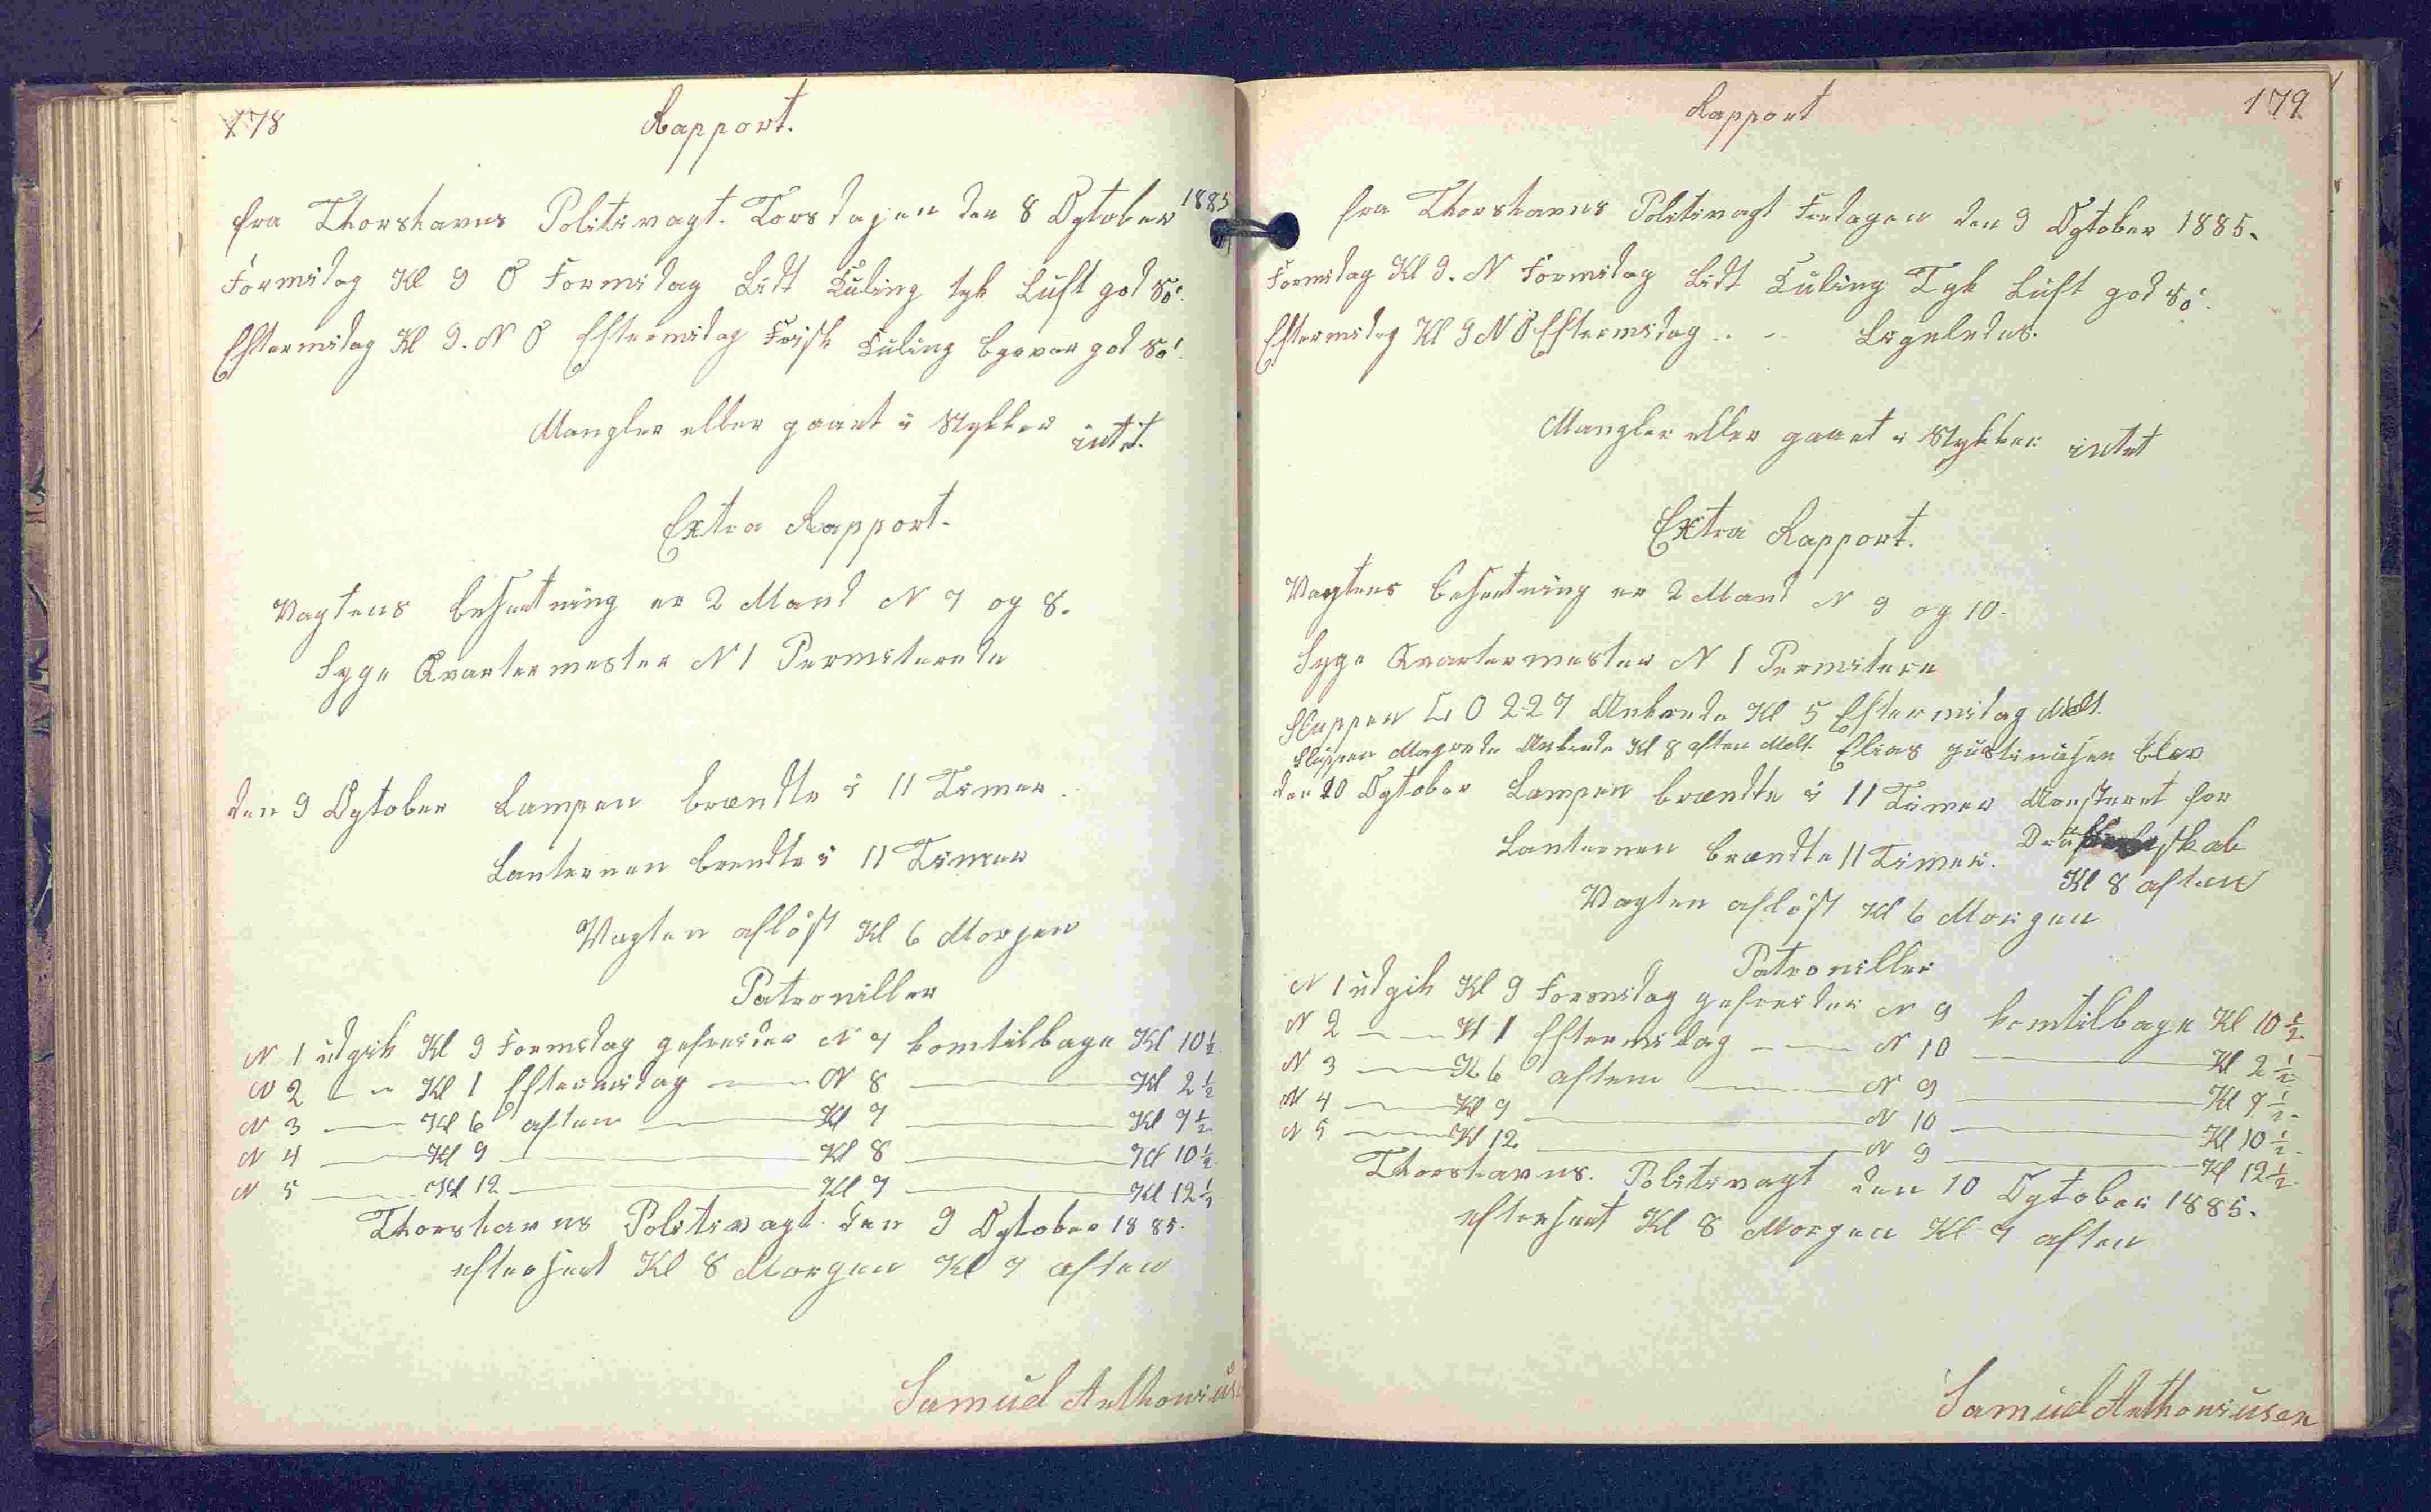 178
Rapport.
fra Thorshavns Politivagt. Torsdagen den 8 Ogtober 1885
Formidag Kl 9 O Formidag Lidt Kuling tyk Luft god Sö.
Eftermidag Kl 9. N O Eftermidag Frisk Kuling god Sö.
Mangler eller gaaet i Stykker intet.
Extra Rapport.
Vagtens besætning er 2 Mand N 7 og 8.
Syge Qvartermester N 1 Permiterede
den 9 Ogtober Lampen brændte i 11 Timer.
Lanternen brendte i 11 Timer
Vagten aflöst Kl 6 Morgen
Patroniller
N 1 udgik Kl 9 Formidag gefreider N 7 komtilbage Kl 10½.
N 2 — " Kl 1 Eftermidag — N 8 — Kl 2½
N 3 — Kl 6 aften — Kl 7 — Kl 7½
N 4 — Kl 9 — Kl 8 — Kl 10½
N 5 — Kl 12 — Kl 7 — Kl 12½
Thorshavns Politivagt den 9 Ogtober 1885.
efterseet Kl 8 Morgen Kl 7 aften
Samuel Anthonius
Rapport
179
fra Thorshavns Politivagt Fredagen den 9 Ogtober 1885.
Formidag Kl 9. N Formidag Lidt Kuling Tyk Luft god Sö.
Eftermidag Kl 9 N O Eftermidag .. -- Ligeledes.
Mangler eller gaaet i Stykker intet
Extra Rapport.
Vagtens besætning er 2 Mand N 9 og 10.
Syge Qvartermester N 1 Permitere
Sluppen 227 Ankrede Kl 5 Eftermidag Melt.
Sluppen Magrete Ankrede Kl 8 aften Melt. Elias Justinusen blev
den 10 Ogtober Lampen brændte i 11 Timer Arresteret for
Lanternen brændte 11 Timer. Drukenskab
Kl 8 aften
Vagten aflöst Kl 6 Morgen
Patroniller
N 1 udgik Kl 9 Formidag gefreider N 9 komtilbage Kl 10½
N 2 — Kl 1 Eftermidag — N 10 — Kl 2½
N 3 — Kl 6 aften — N 9 — Kl 7½
N 4 — Kl 9 — N 10 — Kl 10½
N 5 — Kl 12 — N 9 — Kl 12½
Thorshavns. Politivagt den 10 Ogtober 1885.
efterseet Kl 8 Morgen Kl 7 aften
Samuel Anthoniusen